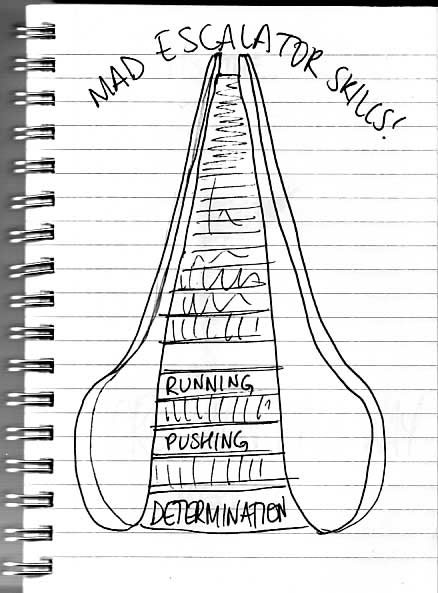 MAD ESCALATOR SKILLS!
RUNNING
PUSHING
DETERMINATION